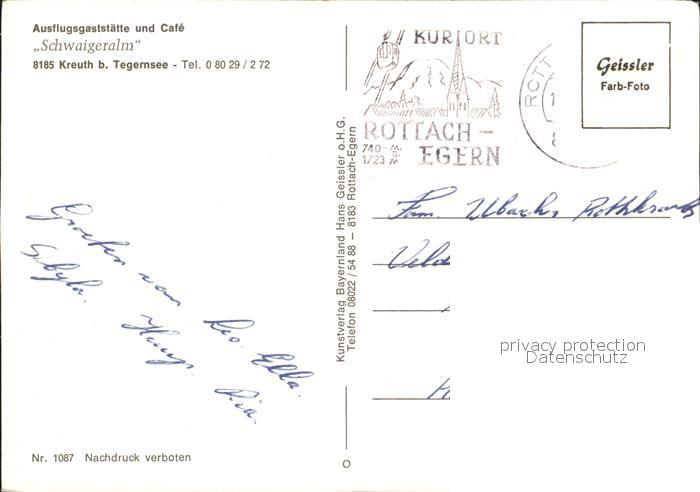 Ausflugsgaststätte und Café
„Schwaigeralm"
8185 Kreuth b. Tegernsee - Tel. 0 80 29 / 2 72
Groeten van Leo. Ella.
Sibyla. Huup. Ria.
Nr. 1087 Nachdruck verboten
Kunstverlag Bayernland Hans Geissler o.H.G.
Telefon 08022 / 54 88 – 8183 Rottach-Egern
KURORT
ROTTACH-
740- M.
1723 M
EGERN
ROTT
Geissler
Farb-Foto
Fam. Ubachs
Veld
privacy protection
Datenschutz